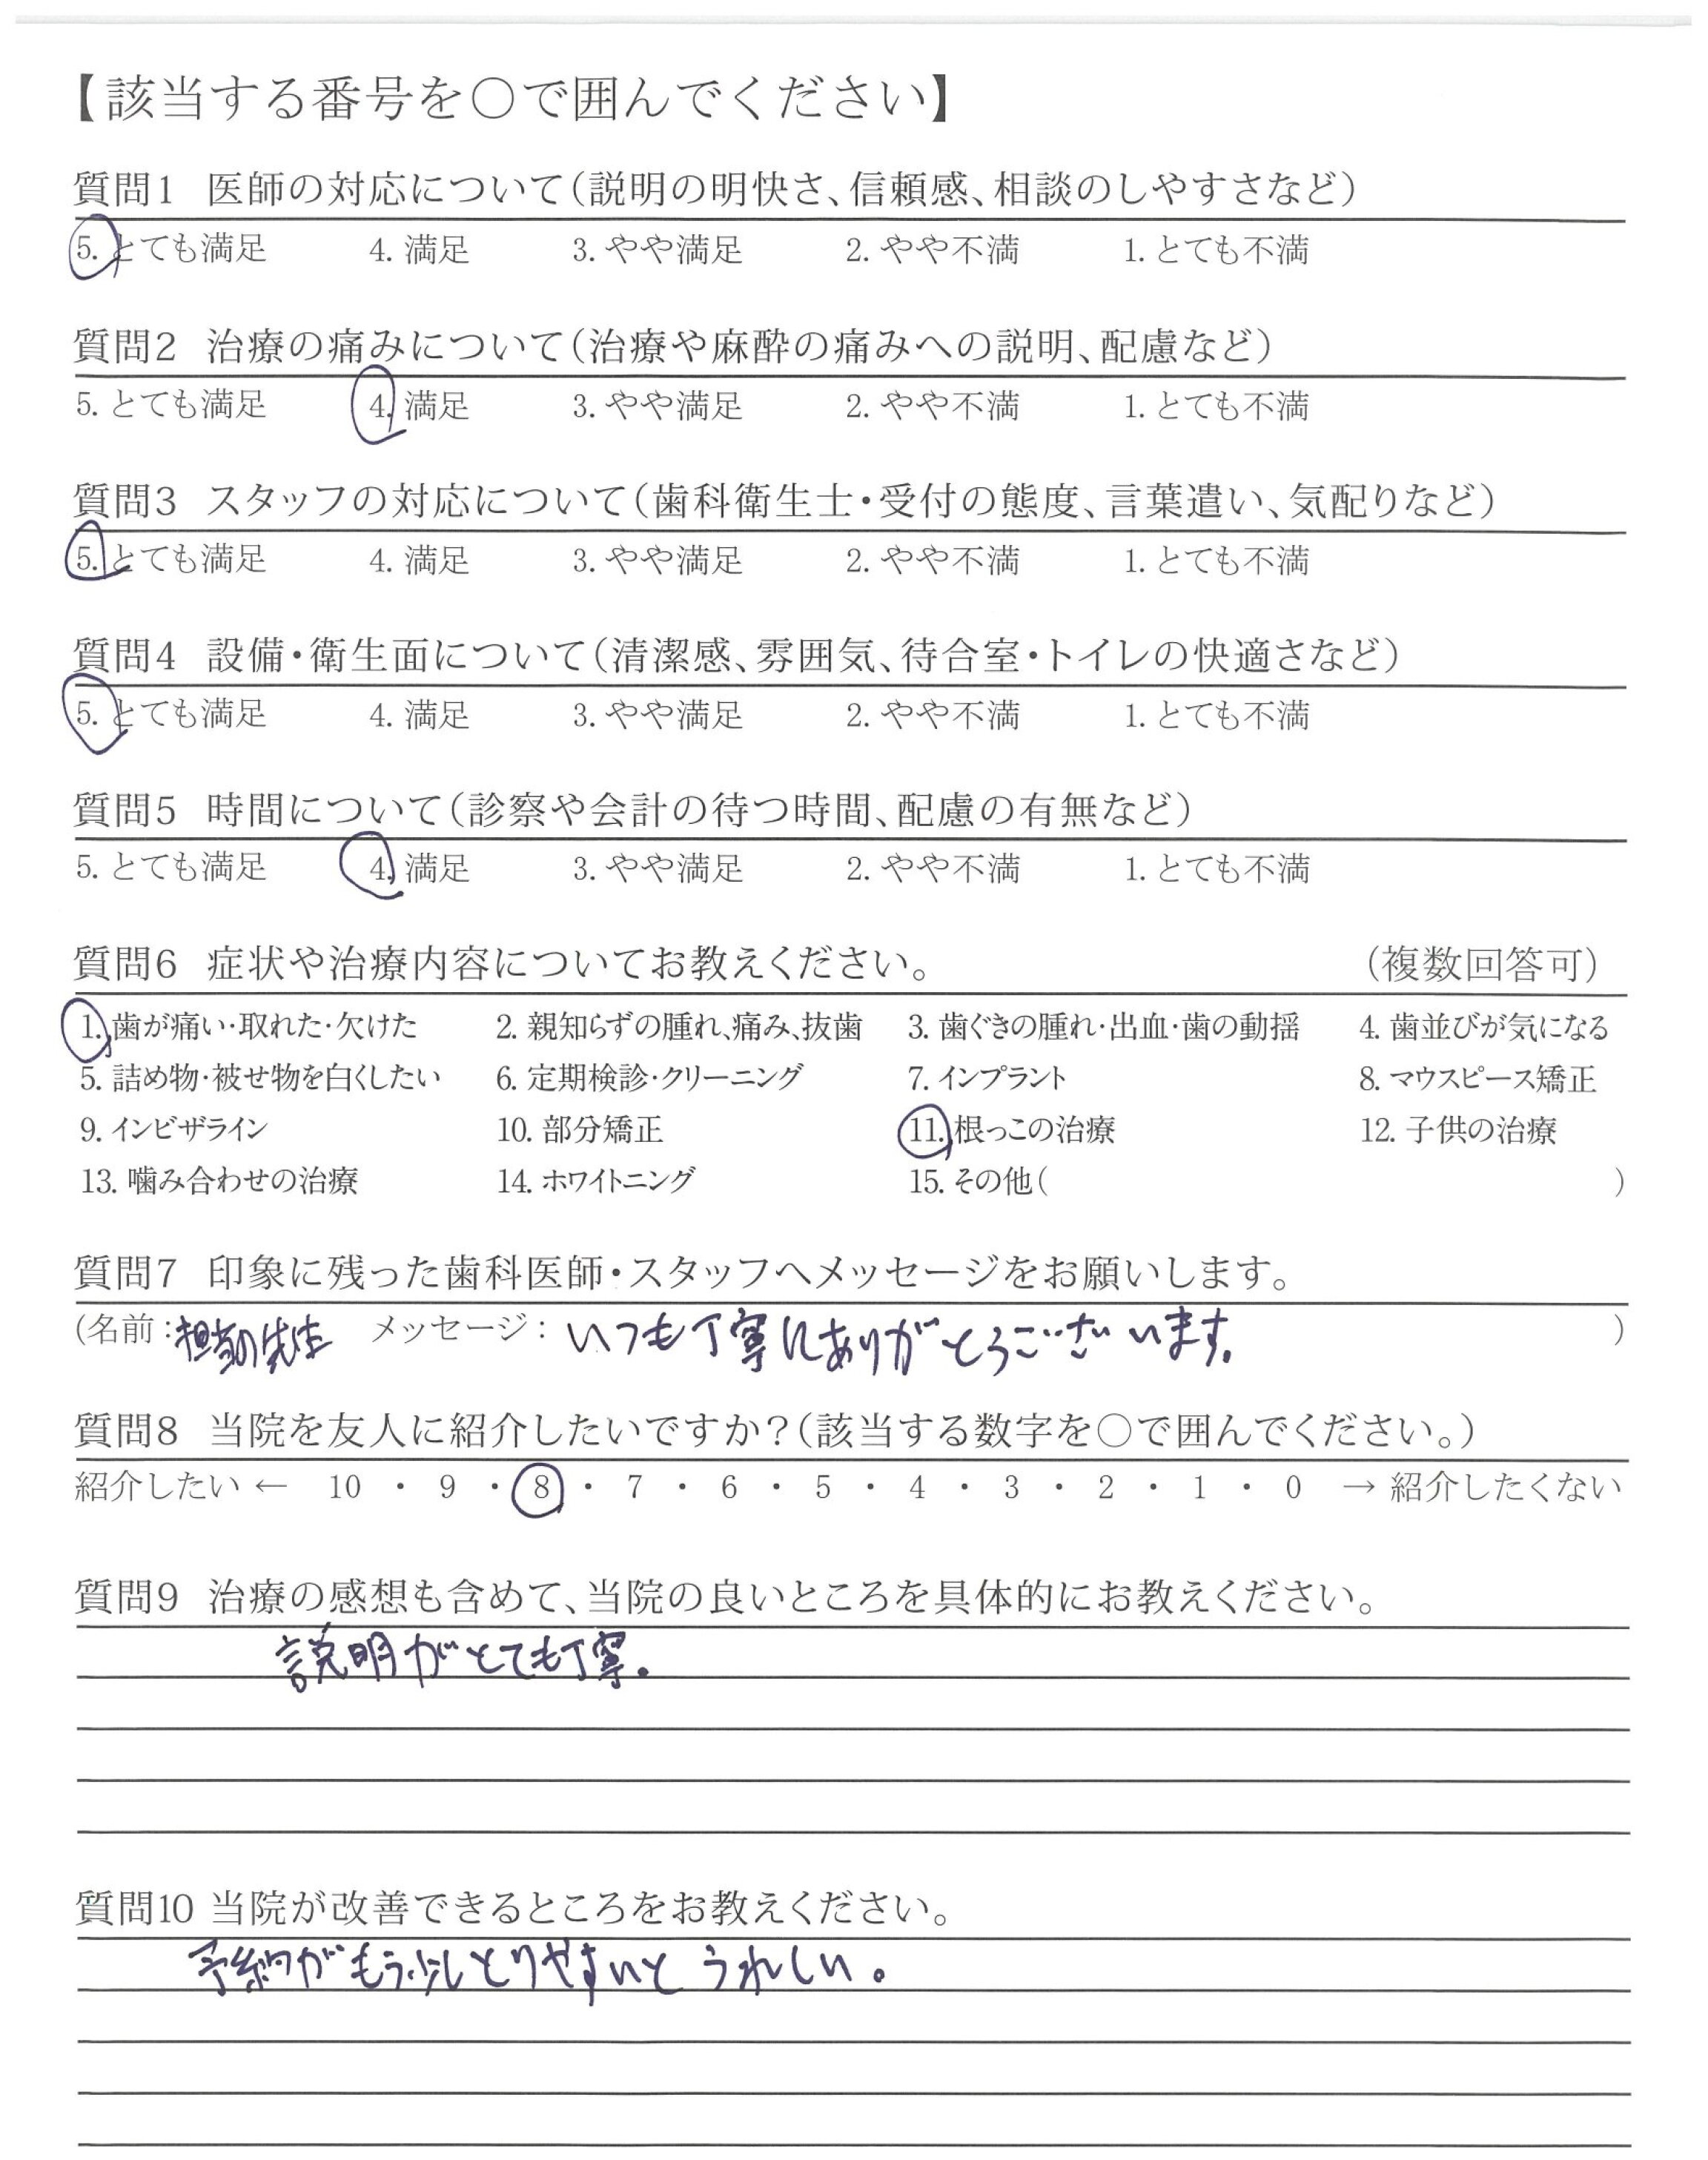 【該当する番号を○で囲んでください】
質問1 医師の対応について(説明の明快さ、信頼感、相談のしやすさなど)
5. とても満足 4. 満足 3. やや満足 2. やや不満 1. とても不満
質問2 治療の痛みについて(治療や麻酔の痛みへの説明、配慮など)
5. とても満足 4. 満足 3. やや満足 2. やや不満 1. とても不満
質問3 スタッフの対応について(歯科衛生士・受付の態度、言葉遣い、気配りなど)
5. とても満足 4. 満足 3. やや満足 2. やや不満 1. とても不満
質問4 設備・衛生面について(清潔感、雰囲気、待合室・トイレの快適さなど)
5. とても満足 4. 満足 3. やや満足 2. やや不満 1. とても不満
質問5 時間について(診察や会計の待つ時間、配慮の有無など)
5. とても満足 4. 満足 3. やや満足 2. やや不満 1. とても不満
質問6 症状や治療内容についてお教えください。 (複数回答可)
1. 歯が痛い・取れた・欠けた 2. 親知らずの腫れ、痛み、抜歯 3. 歯ぐきの腫れ・出血・歯の動揺 4. 歯並びが気になる
5. 詰め物・被せ物を白くしたい 6. 定期検診・クリーニング 7. インプラント 8. マウスピース矯正
9. インビザライン 10. 部分矯正 11. 根っこの治療 12. 子供の治療
13. 噛み合わせの治療 14. ホワイトニング 15. その他( )
質問7 印象に残った歯科医師・スタッフへメッセージをお願いします。
(名前:担当の先生 メッセージ:いつも丁寧にありがとうございます。 )
質問8 当院を友人に紹介したいですか?(該当する数字を○で囲んでください。)
紹介したい ← 10 ・ 9 ・ 8 ・ 7 ・ 6 ・ 5 ・ 4 ・ 3 ・ 2 ・ 1 ・ 0 → 紹介したくない
質問9 治療の感想も含めて、当院の良いところを具体的にお教えください。
説明がとても丁寧。
質問10 当院が改善できるところをお教えください。
予約がもう少しとりやすいとうれしい。